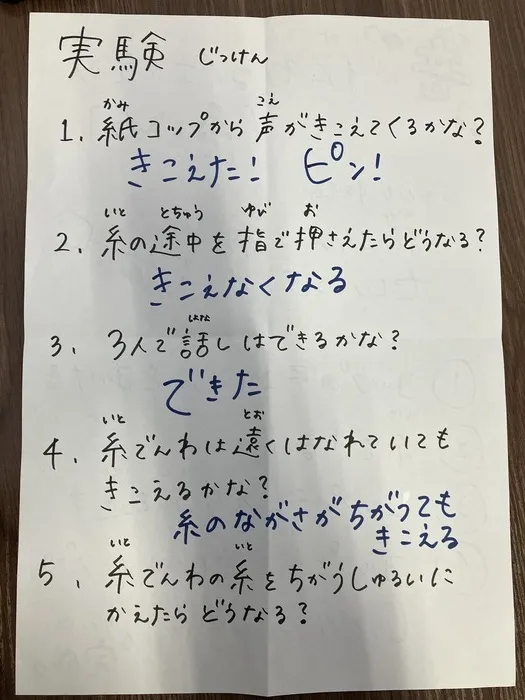 実験 じっけん
かみ こえ
1. 紙コップから声がきこえてくるかな?
きこえた! ピン!
いと とちゅう ゆび お
2. 糸の途中を指で押さえたらどうなる?
きこえなくなる
はな
3. 3人で話しはできるかな?
できた
いと とお
4. 糸でんわは遠くはなれていても
きこえるかな?
糸のながさがちがうても
きこえる
いと いと
5. 糸でんわの糸をちがうしゅるいに
かえたらどうなる?